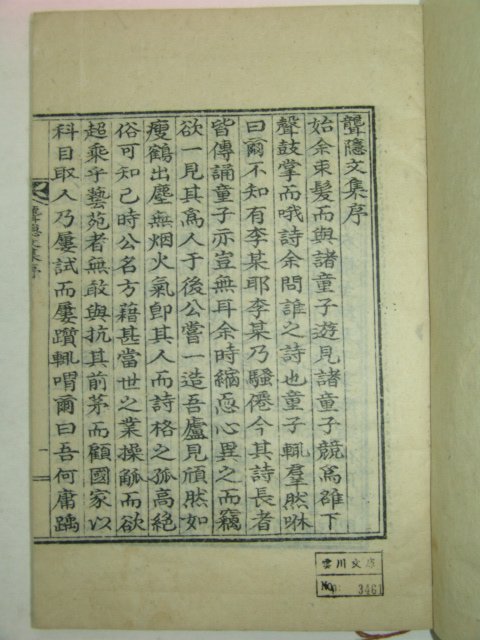 聾隱文集序
始余束髮而與諸童子遊見諸童子競爲雄下
聲鼓掌而哦詩余問誰之詩也童子輒羣然咻
曰爾不知有李某耶李某乃騷僊今其詩長者
皆傳誦童子亦豈無耳余時緬恧心異之而竊
欲一見其爲人于後公嘗一造吾廬見頎然如
瘦鶴出塵無烟火氣卽其人而詩格之孤高絕
俗可知已時公名方藉甚當世之業操觚而欲
超乘乎藝苑者無敢與抗其前茅而顧國家以
科目取人乃屢試而屢躓輒喟爾曰吾何庸踽
聾隱文集序
一
雲川文庫
No. 3461